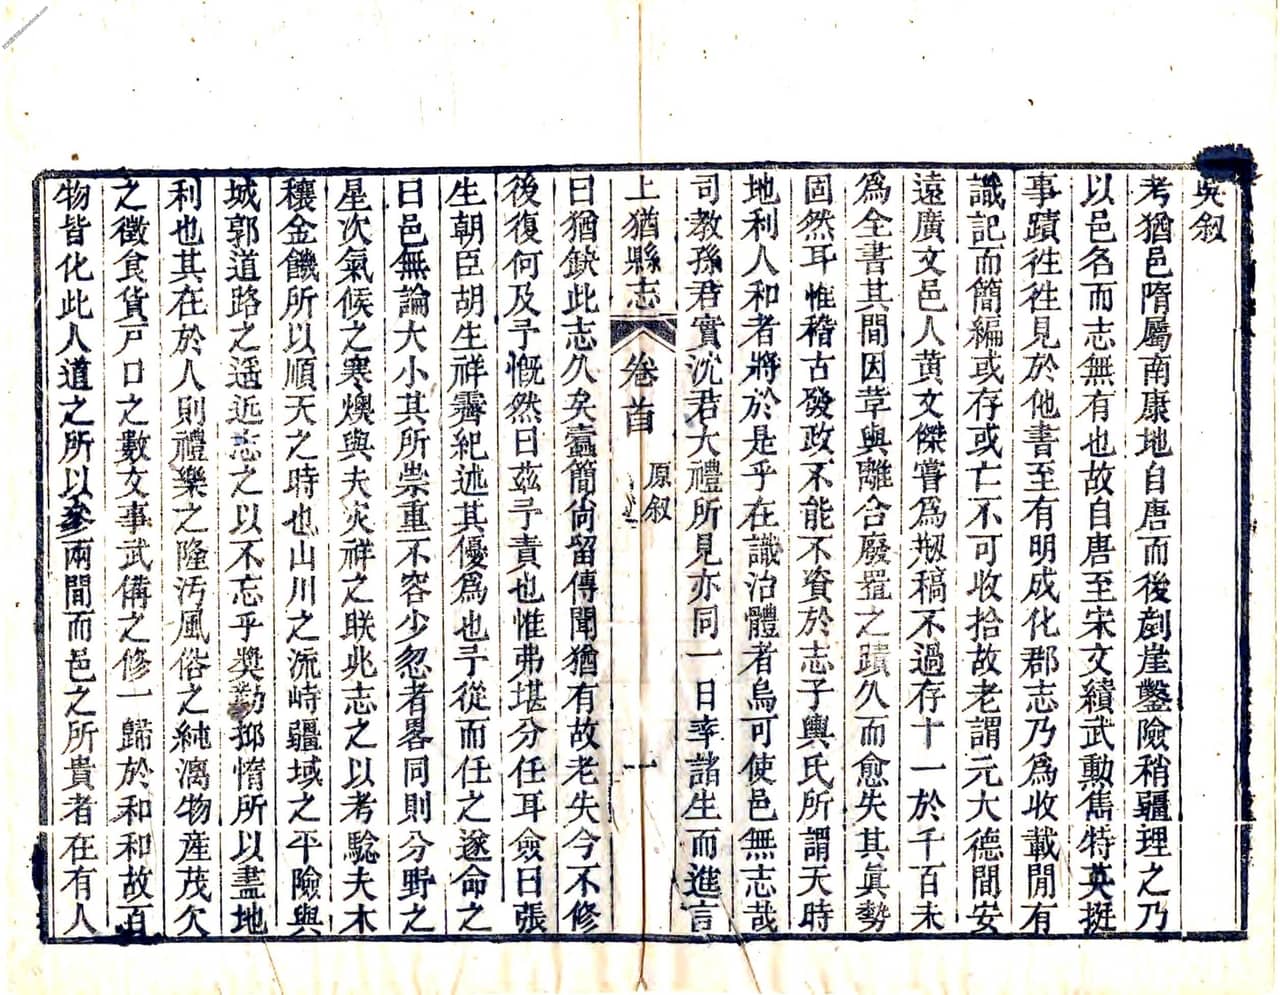 吳叙
考猶邑隋屬南康地自唐而後剷崖鑿險稍疆理之乃
以邑名而志無有也故自唐至宋文績武勲雋特英挺
事蹟徃徃見於他書至有明成化郡志乃爲收載閒有
識記而簡編或存或亡不可收拾故老謂元大德間安
遠廣文邑人黄文傑嘗爲剏稿不過存十一於千百未
爲全書其間因革與離合廢置之蹟久而愈失其眞勢
固然耳惟稽古發政不能不資於志子輿氏所謂天時
地利人和者將於是乎在識治體者烏可使邑無志哉
司教孫君實沈君大禮所見亦同一日率諸生而進言
上猶縣志 卷首 原叙 一
曰猶缺此志久矣蠹簡尚留傳聞猶有故老失今不修
後復何及予慨然曰茲予責也惟弗堪分任耳僉曰張
生朝臣胡生祥霽紀述其優爲也予從而任之遂命之
曰邑無論大小其所崇重不容少忽者畧同則分野之
星次氣候之寒燠與夫灾祥之联兆志之以考騐夫木
穰金饑所以順天之時也山川之流峙疆域之平險與
城郭道路之遥近志之以不忘乎奬勤抑惰所以盡地
利也其在於人則禮樂之隆汚風俗之純漓物產茂欠
之徵食貨戸口之數文事武備之修一歸於和和故百
物皆化此人道之所以參兩間而邑之所貴者在有人